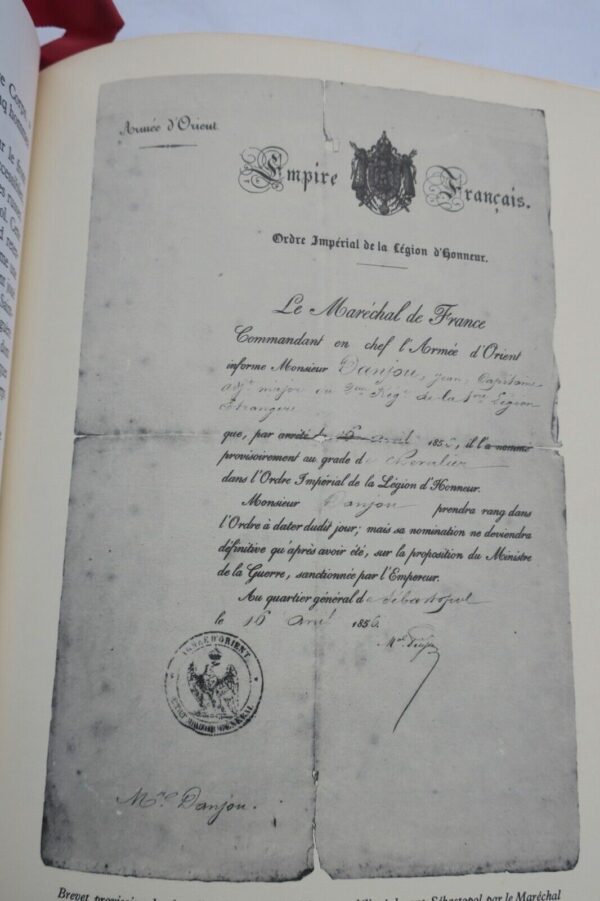 re Corps,
Armée d'Orient
Empire Français.
Ordre Impérial de la Légion d'Honneur.
Le Maréchal de France
Commandant en chef l'Armée d'Orient
informe Monsieur Danjou, Jean, Capitaine
adjt major du 2me Regt de la 1ère Légion
Etrangère
que, par arrêté du 16 avril 1856, il l'a nommé
provisoirement au grade de Chevalier
dans l'Ordre Impérial de la Légion d'Honneur.
Monsieur Danjou prendra rang dans
l'Ordre à dater dudit jour; mais sa nomination ne deviendra
définitive qu'après avoir été, sur la proposition du Ministre
de la Guerre, sanctionnée par l'Empereur.
Au quartier général de Sébastopol
le 16 avril 1856
ARMÉE D'ORIENT
ETAT MAJOR GÉNÉRAL
Danjou.
Sébastopol par le Maréchal